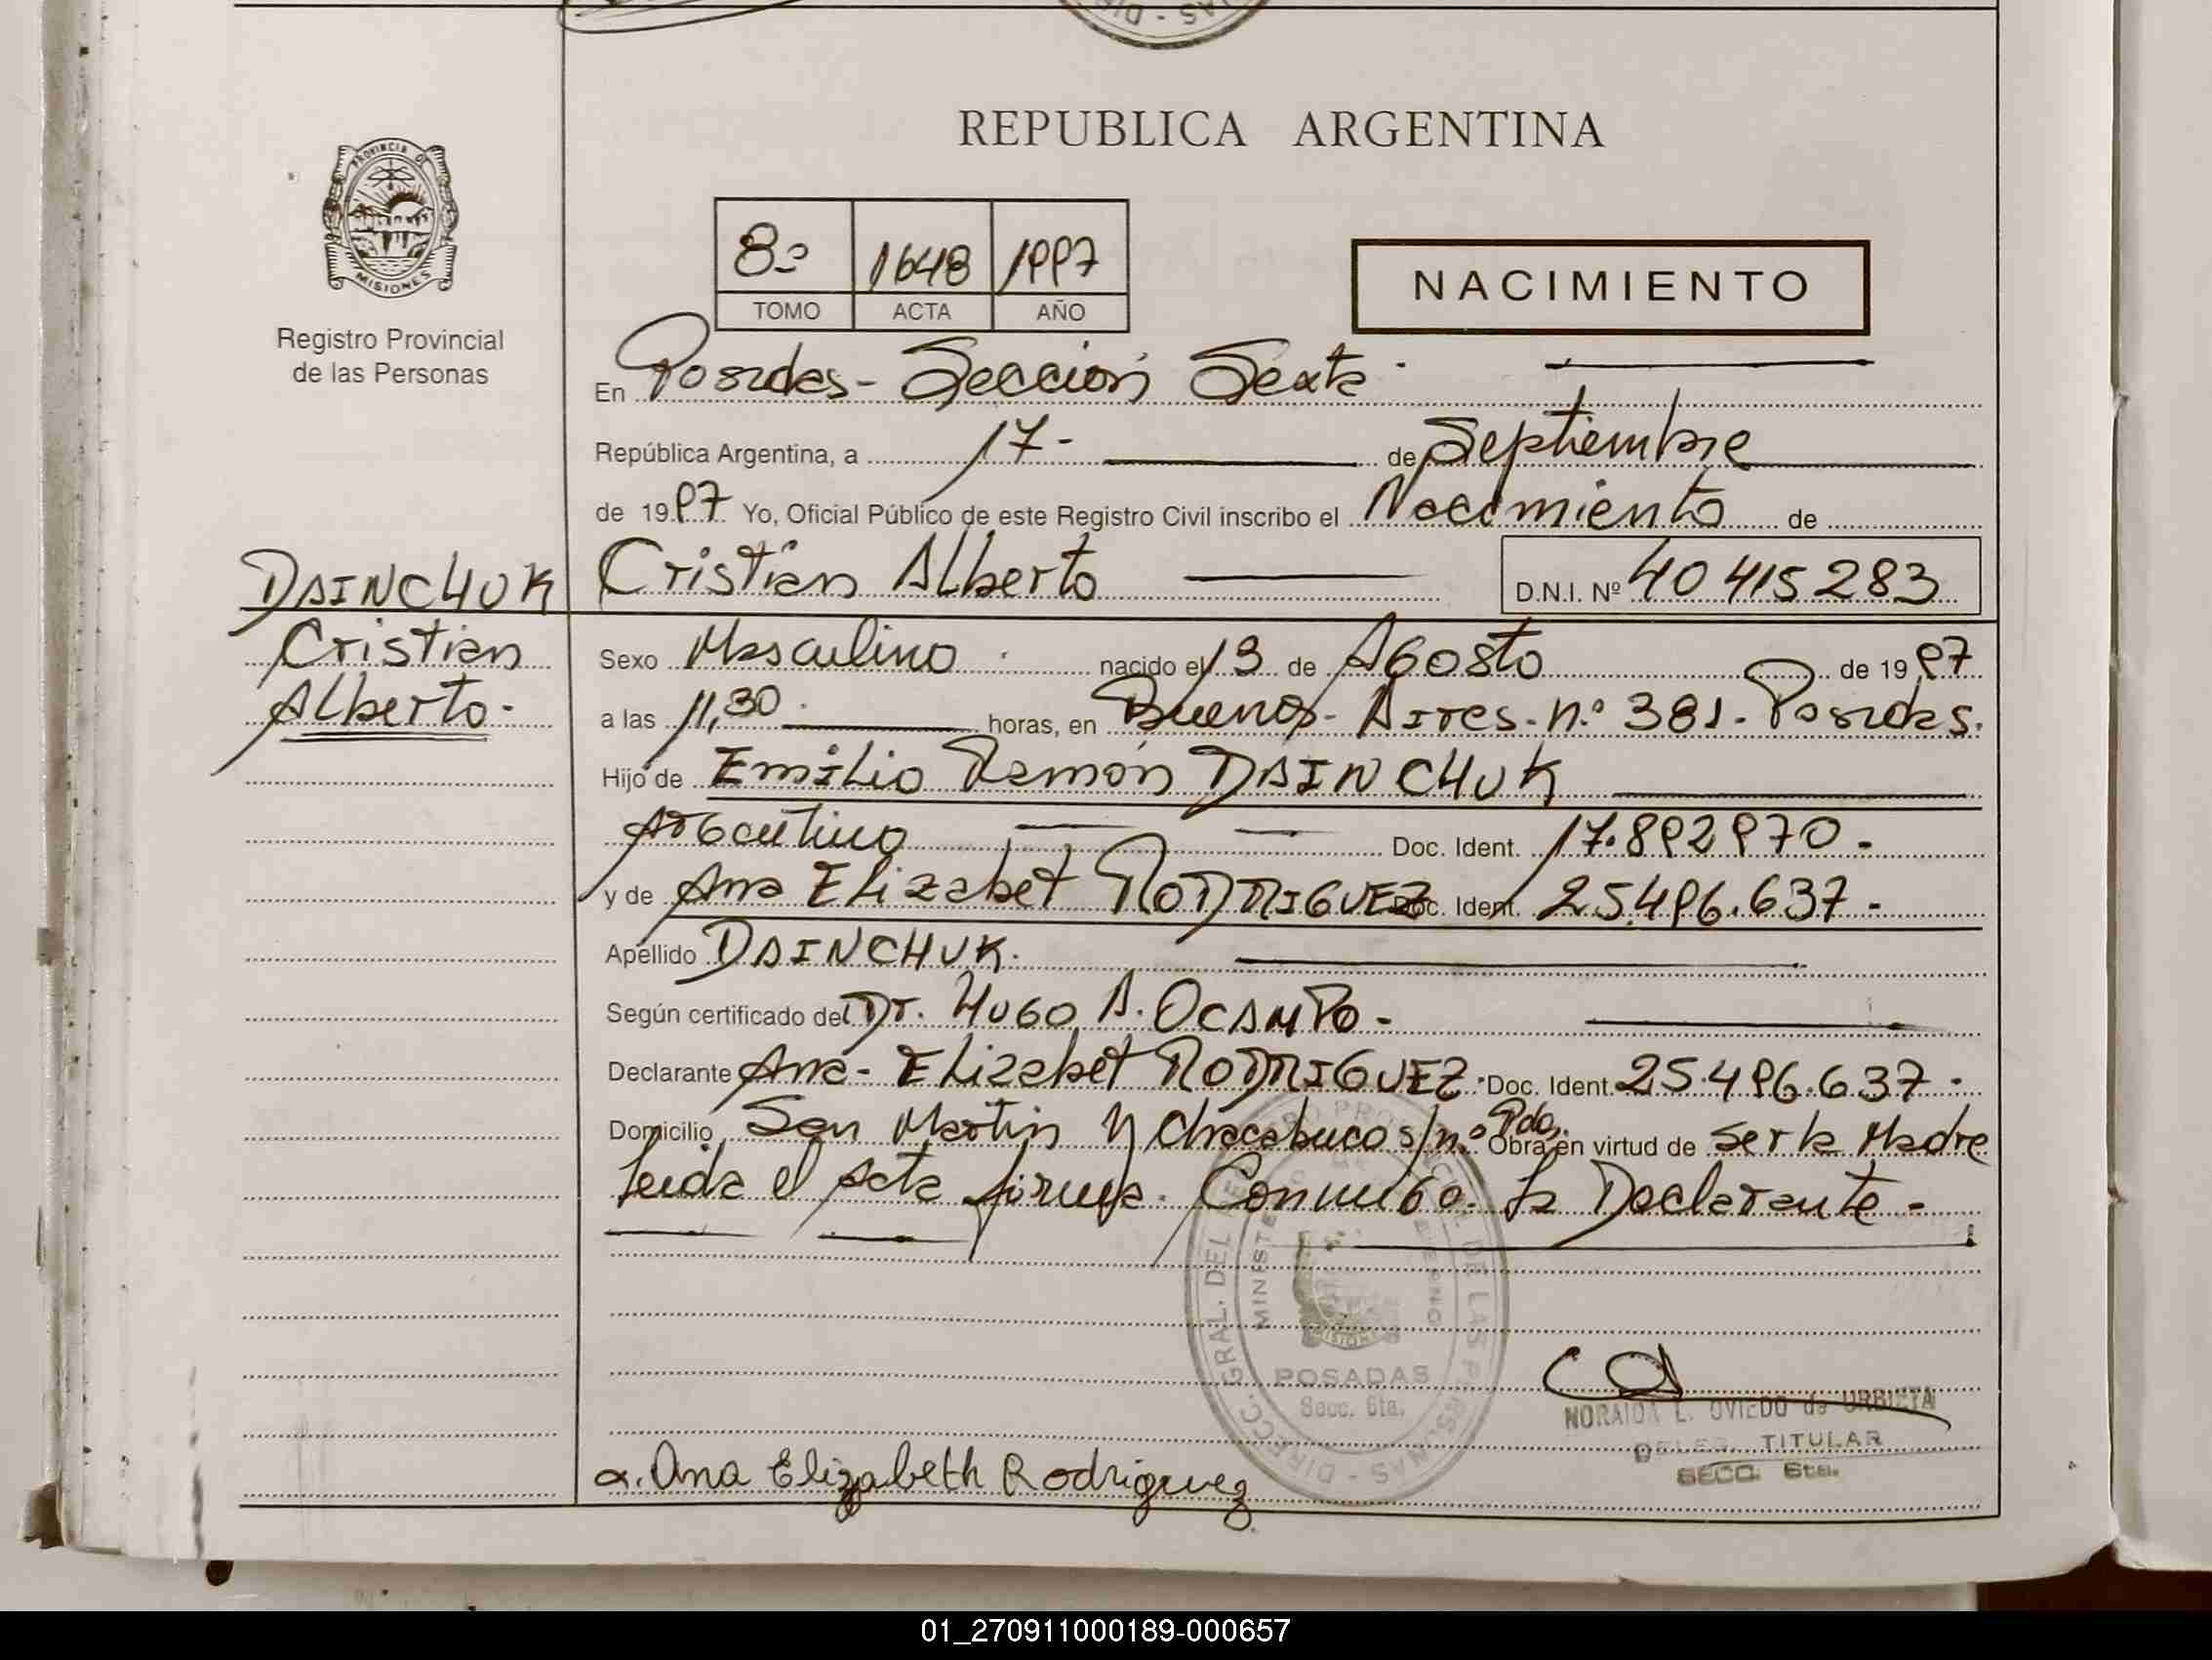 REPUBLICA ARGENTINA
PROVINCIA DE
MISIONES
Registro Provincial
de las Personas
8º 1648 1997
TOMO ACTA AÑO
NACIMIENTO
En Posadas - Sección Sexta
República Argentina, a 17- de Septiembre
de 1997 Yo, Oficial Público de este Registro Civil inscribo el Nacimiento de
Cristian Alberto D.N.I. Nº 40 415 283
DAINCHUK
Cristian
Alberto.
Sexo Masculino nacido el 13 de Agosto de 1997
a las 11,30 horas, en Buenos-Aires-n.º 381-Posadas.
Hijo de Emilio Ramón DAINCHUK
Argentino Doc. Ident. 17.892970.-
y de Ana Elizabet RODRIGUEZ Doc. Ident. 25.496.637.-
Apellido DAINCHUK.
Según certificado de Dr. Hugo A. OCAMPO -
Declarante Ana-Elizabet RODRIGUEZ. Doc. Ident. 25.496.637-
Domicilio San Martin y Chacabuco s/nº Pdas. Obra en virtud de ser la Madre
Leida el Acta firma. Conmigo. La Declarante -
DIRECC. GRAL. DEL REGISTRO PROVINCIAL DE LAS PERSONAS
MISIONES
POSADAS
Secc. 6ta.
NORAIDA L. OVIEDO de URBIETA
DELEG. TITULAR
SECC. 6ta.
Ana Elizabeth Rodriguez
01_270911000189-000657